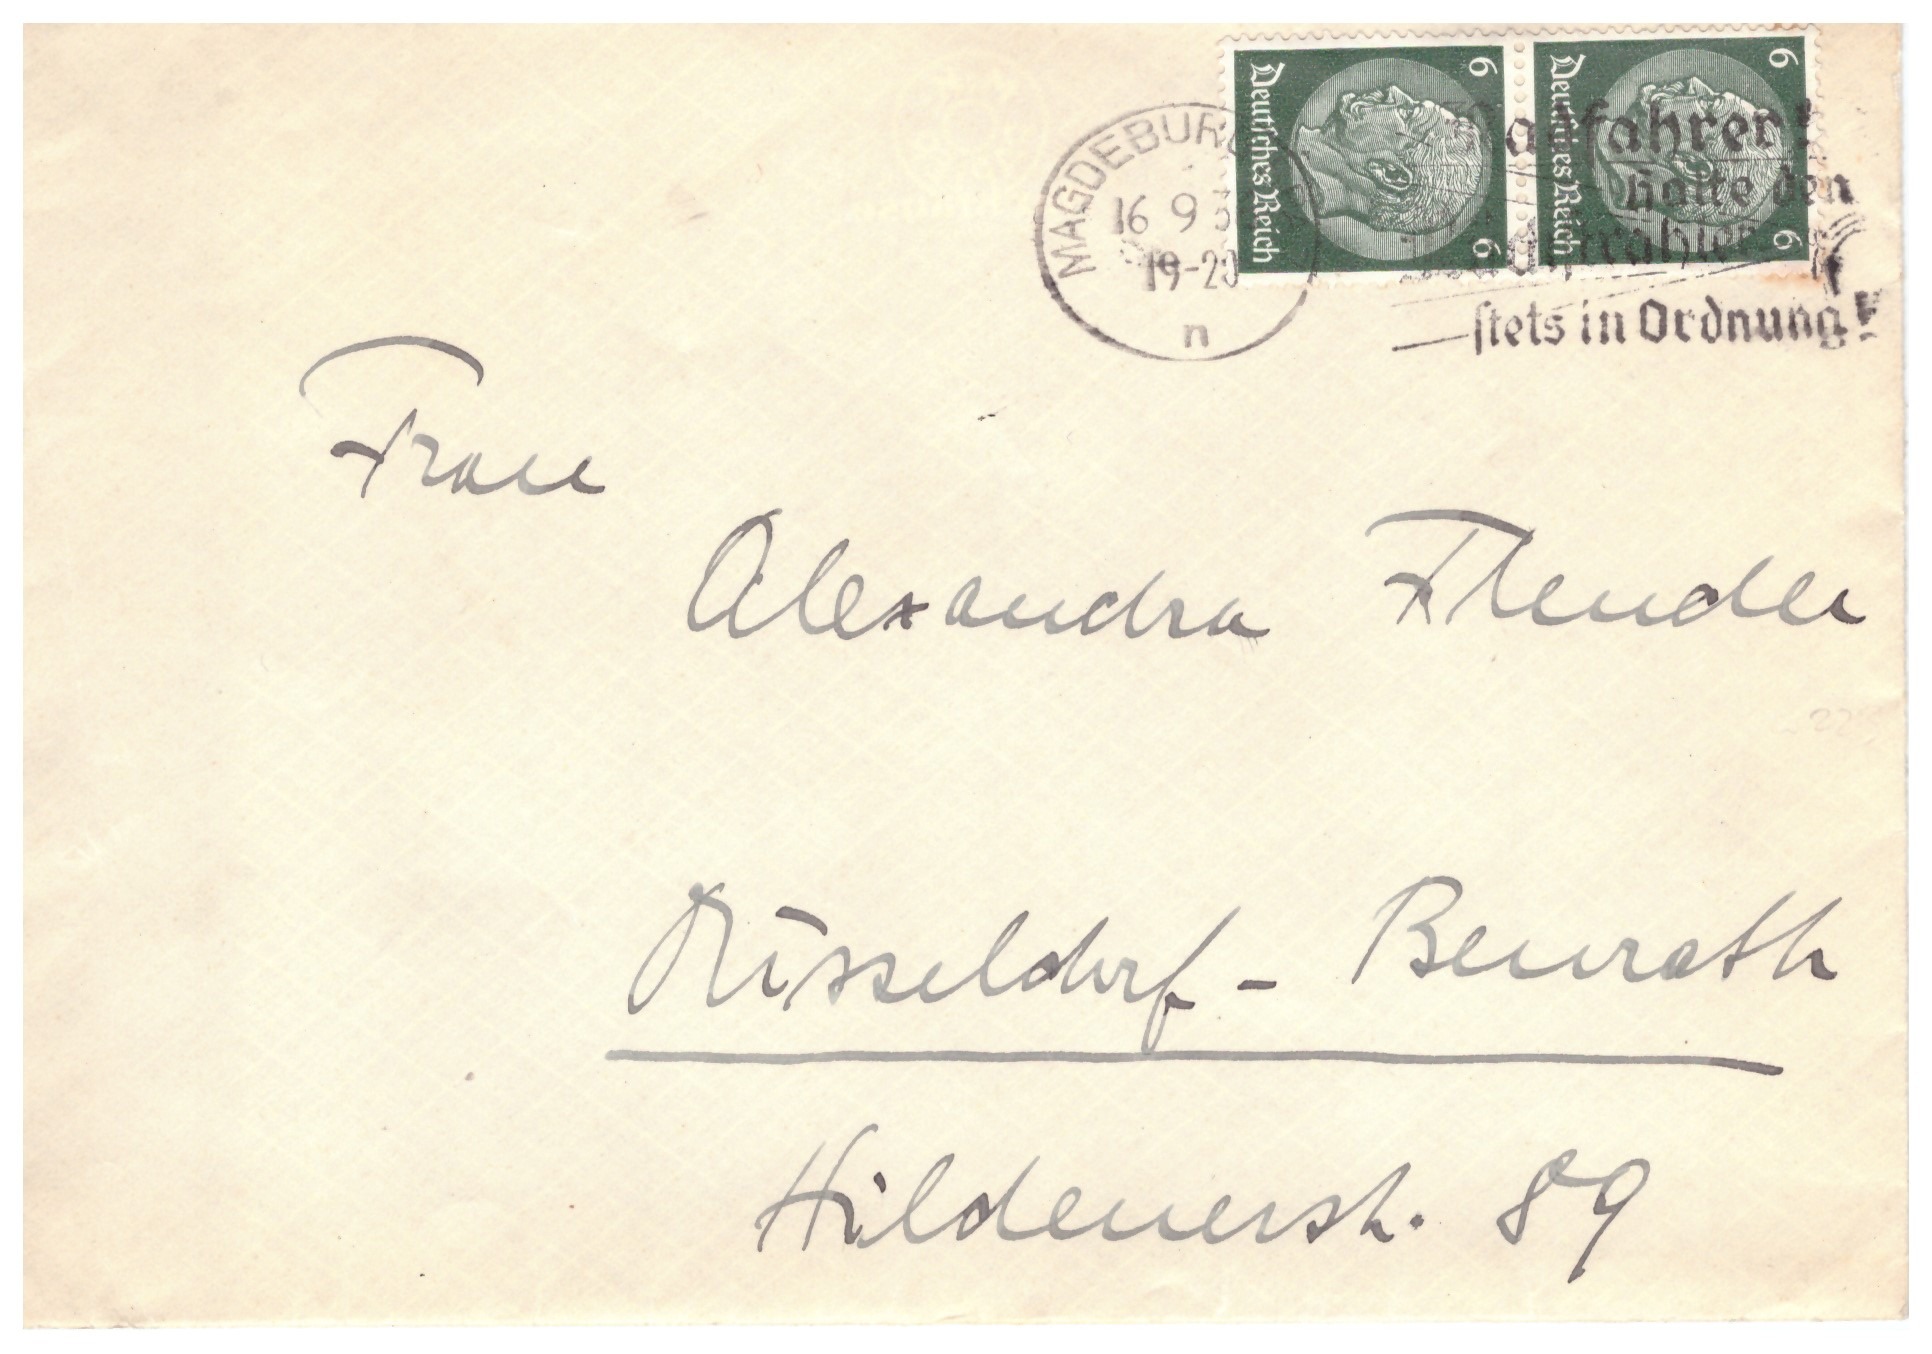 6 6
Deutsches Reich
6 6
Deutsches Reich
MAGDEBURG
16 9 3
19-20
n
Radfahrer!
halte den
Rückstrahler
stets in Ordnung!
Frau
Alexandra Flender
Düsseldorf - Benrath
Hildenerstr. 89